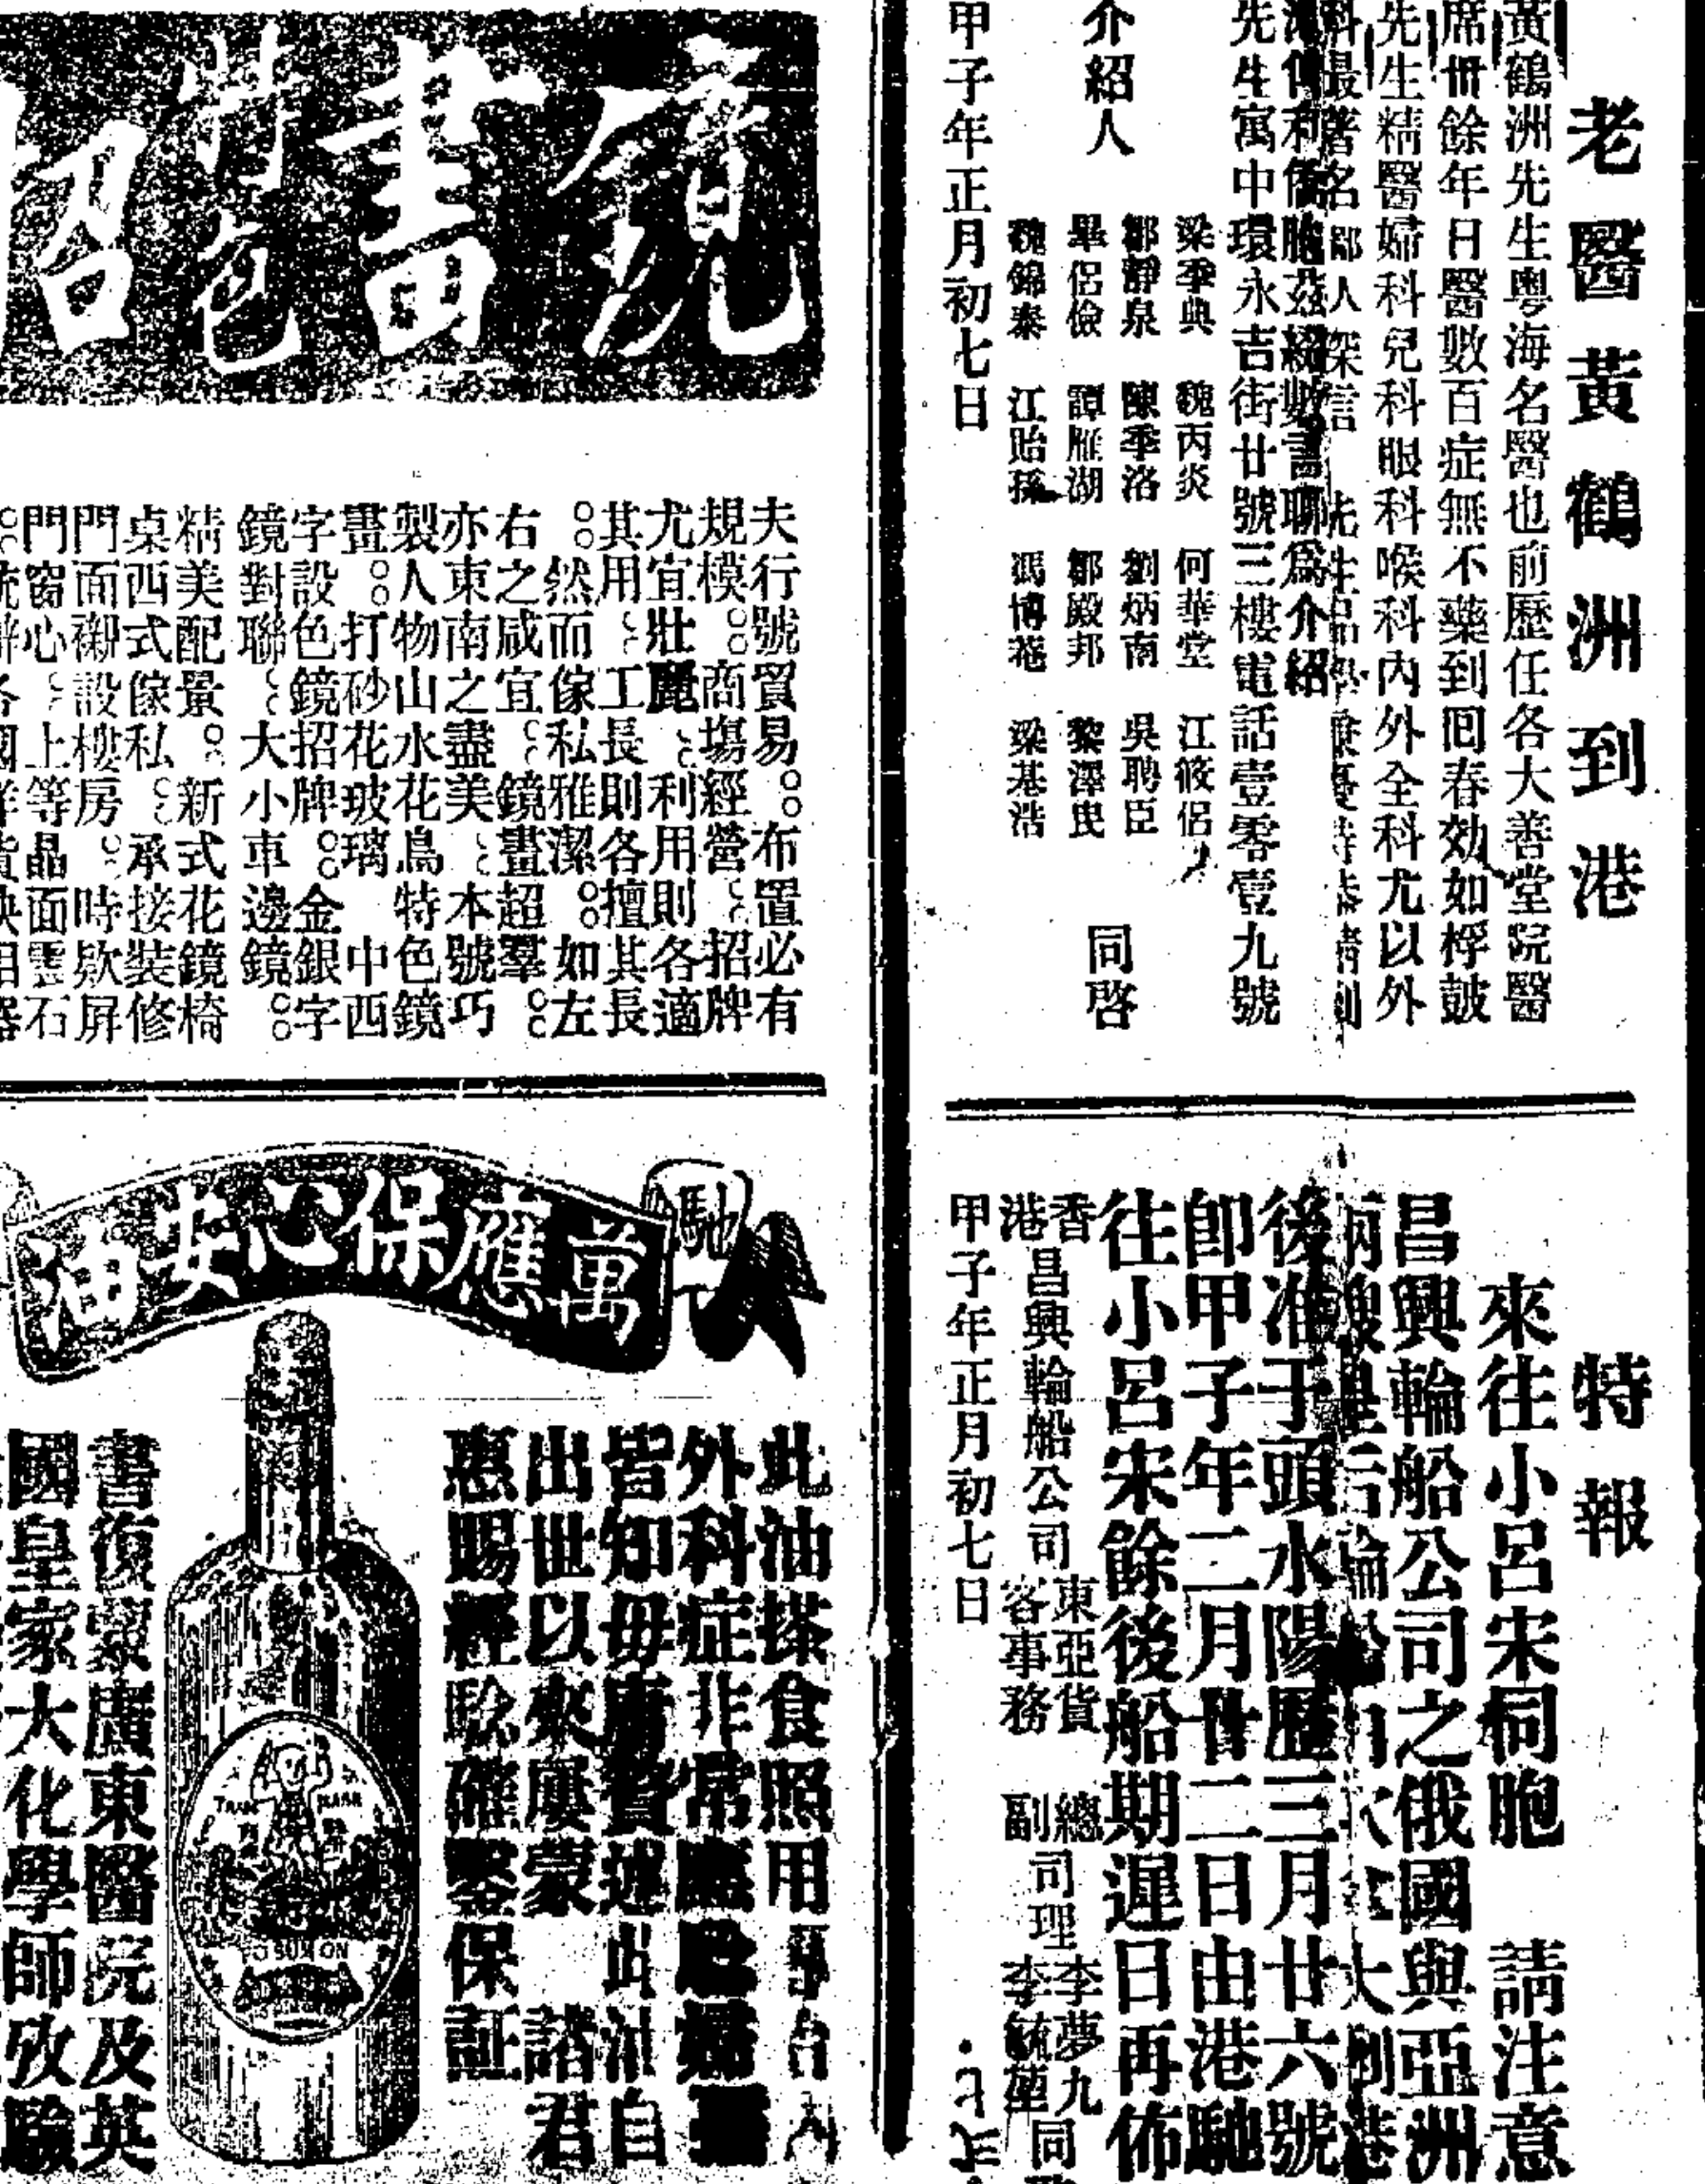 老醫黃鶴洲到港
黃鶴洲先生粵海名醫也前歷任各大善堂院醫
席卅餘年日醫數百症無不藥到回春効如桴鼓
先生精醫婦科兒科眼科喉科內外全科尤以外
科最著名鄰人深信 先生品學兼優特恭請到
港便利僑胞茲綴數言聊爲介紹
先生寓中環永吉街廿號三樓電話壹零壹九號
介紹人
梁季典 魏丙炎 何華堂 江筱侶
鄒靜泉 陳季洛 劉炳南 吳聘臣
畢侶儉 譚雁湖 鄒殿邦 黎澤民
魏錦泰 江貽孫 馮博菴 梁基浩
同啓
甲子年正月初七日
特報
來往小呂宋同胞 請注意
昌興輪船公司之俄國與亞洲
兩艘皇后輪船
後准于頭水陽歷三月廿六號
卽甲子年二月廿二日由港馳
往小呂宋餘後船期遲日再佈
香港昌興輪船公司東亞貨客事務 總副司理李夢九李毓堃同
甲子年正月初七日
鏡畫
招
夫行號貿易。布置必有
規模。商塲經營。招牌
尤宜壯麗。利用則各適
其用。工長則各擅其長
。然而傢私雅潔。如左
右之咸宜。鏡畫超羣。
亦東南之盡美。本號巧
製人物山水花鳥特色鏡
畫。打砂花玻璃 中西
字設色鏡招牌。金銀字
鏡對聯。大小車邊鏡。
精美配景。新式花鏡椅
桌西式傢私。承接裝修
門面𢲷設樓房。時欵屏
門窗心。上等晶面雲石
馳
萬應保心安油
此油搽食照用
外科症非常
皆知毋庸贅述此油自
出世以來屢蒙 諸君
惠賜經騐確鑿保証
TRADE MARK
書復蒙廣東醫院及英
國皇家大化學師攷驗